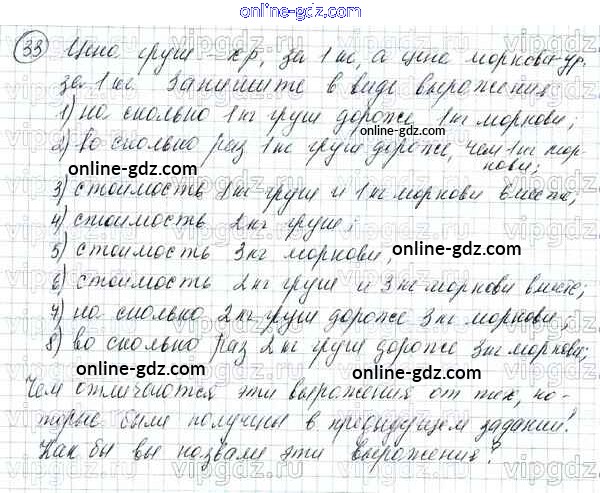 online-gdz.com
33 Цена груш x р. за 1 кг, а цена моркови у р.
за 1 кг. Запишите в виде выражения
1) на сколько 1 кг груш дороже 1 кг моркови;
online-gdz.com
2) во сколько раз 1 кг груш дороже, чем 1 кг мор-
online-gdz.com
кови;
3) стоимость 1 кг груш и 1 кг моркови вместе;
4) стоимость 2 кг груш;
online-gdz.com
5) стоимость 3 кг моркови;
online-gdz.com
6) стоимость 2 кг груш и 3 кг моркови вместе;
7) на сколько 2 кг груш дороже 3 кг моркови;
online-gdz.com
8) во сколько раз 2 кг груш дороже 3 кг моркови;
online-gdz.com
Чем отличаются эти выражения от тех, ко-
торые были получены в предыдущем задании?
Как бы вы назвали эти выражения?
online-gdz.com